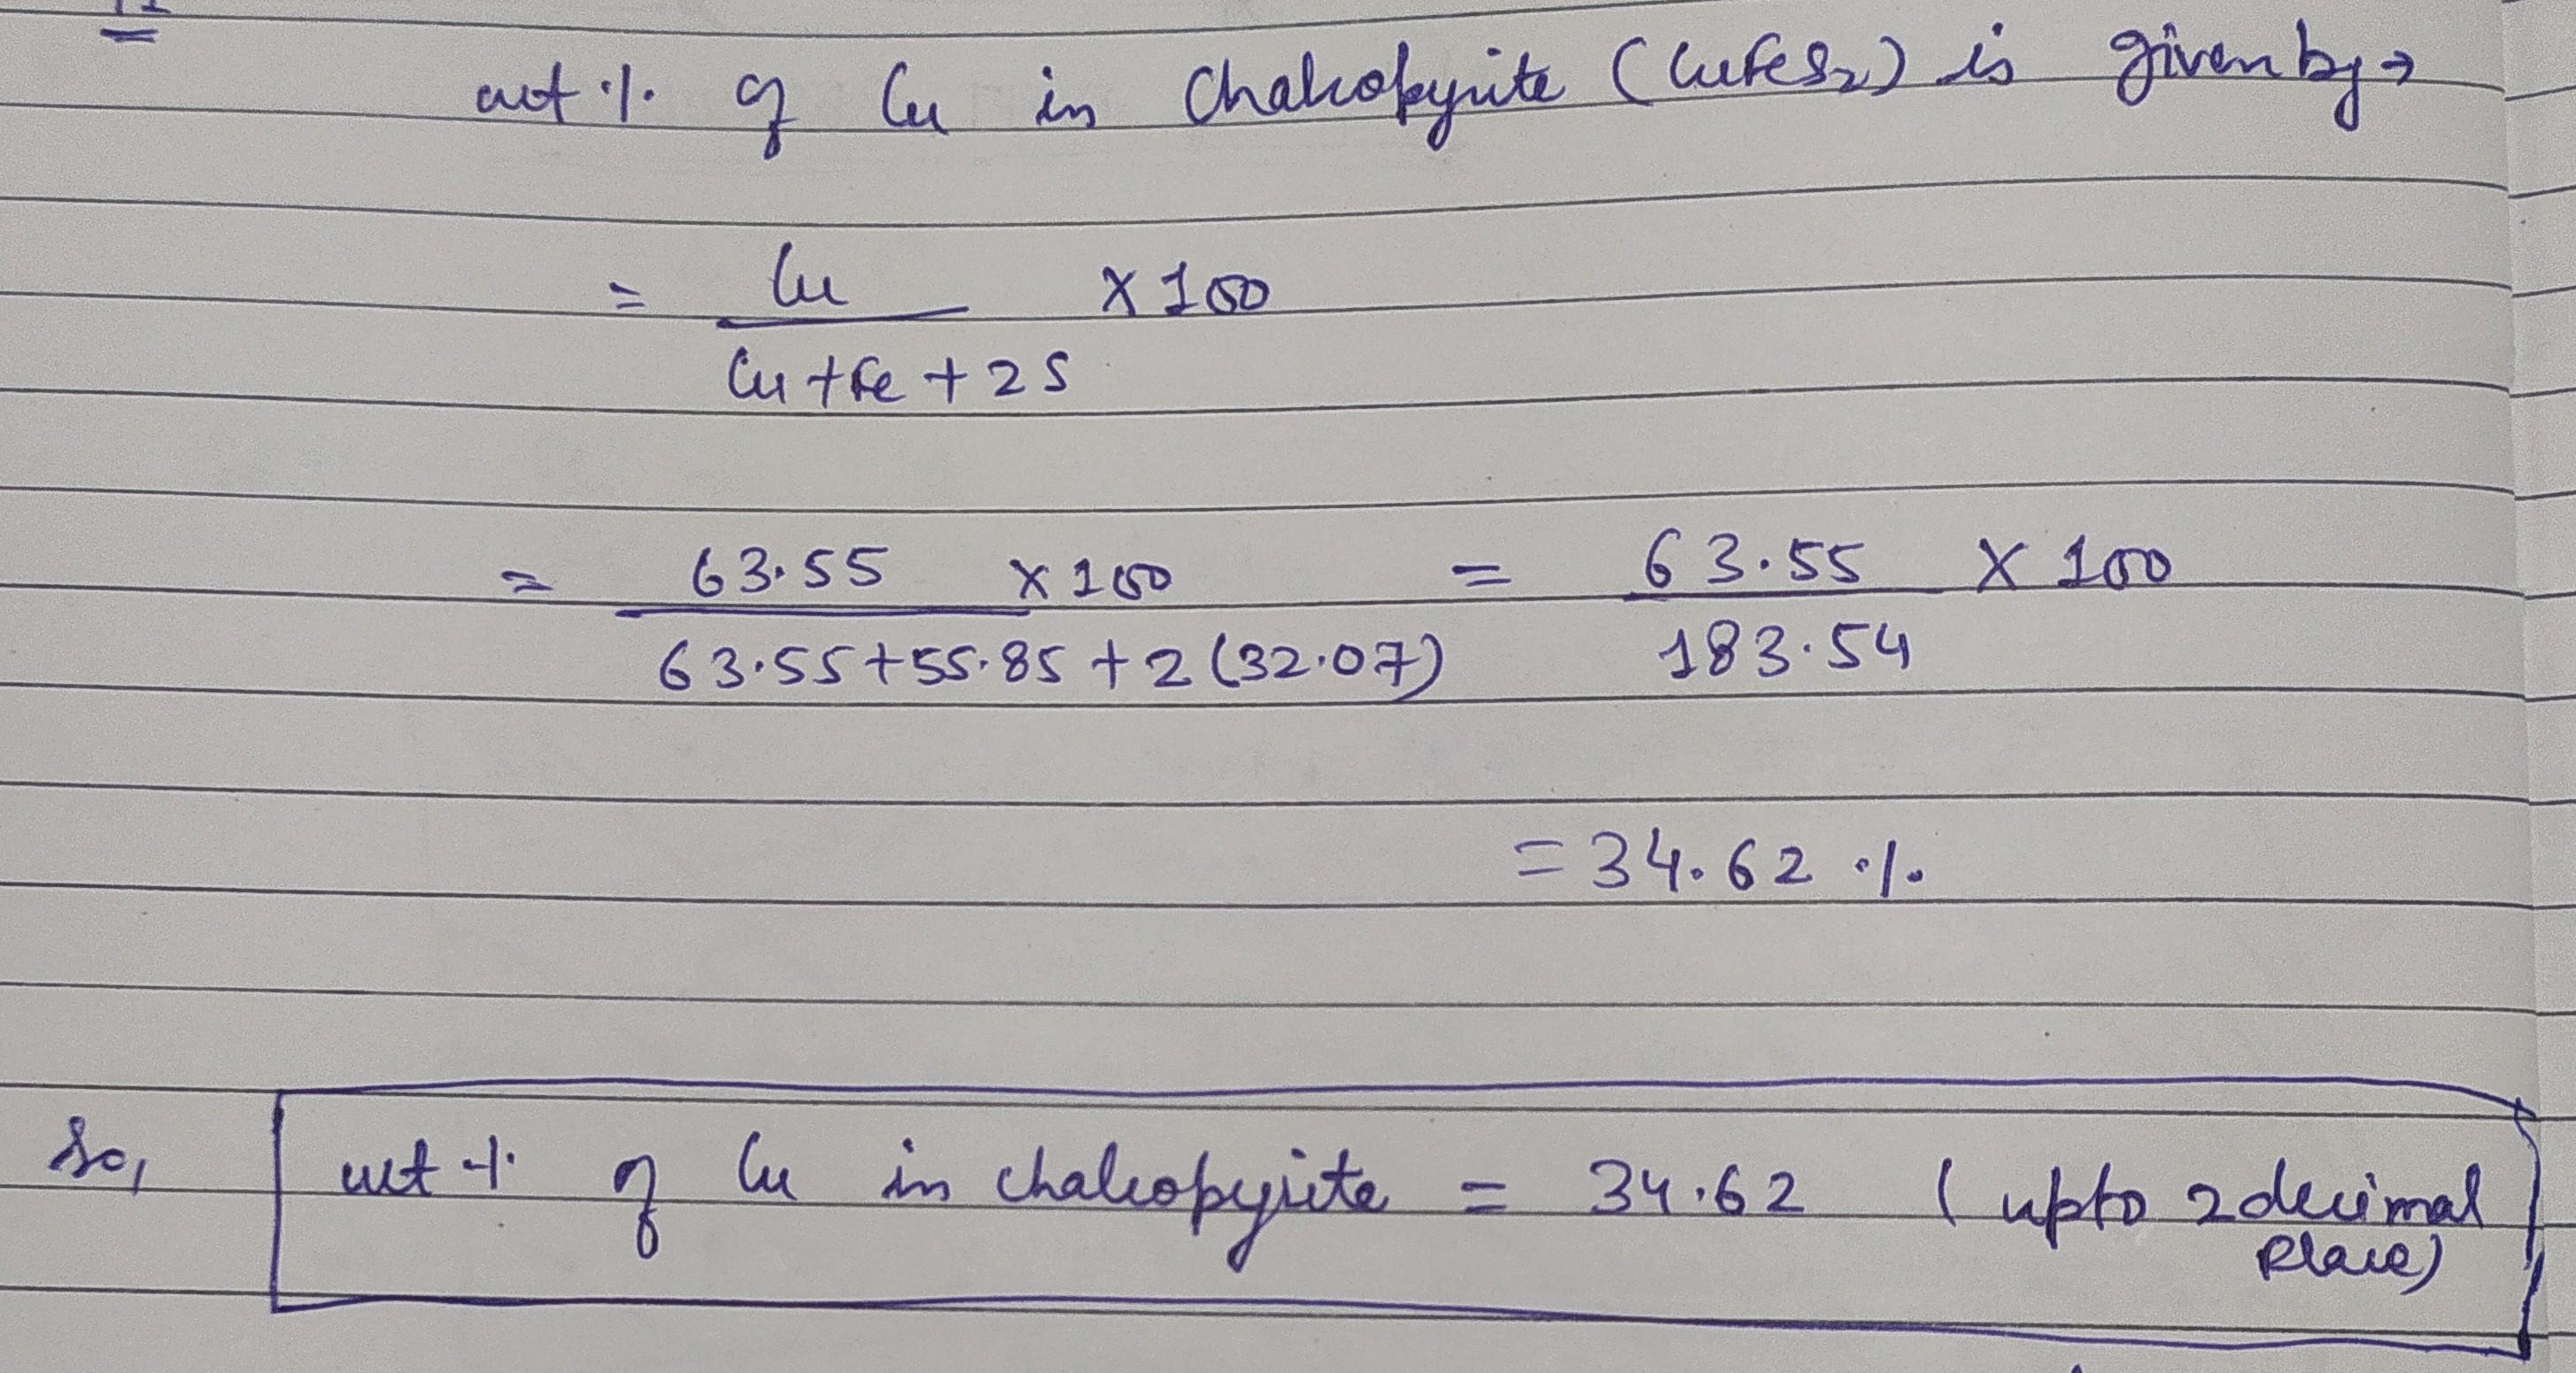 wt % of Cu in Chalcopyrite (CuFeS2) is given by →
= Cu / Cu + Fe + 2S × 100
= 63.55 / 63.55 + 55.85 + 2(32.07) × 100 = 63.55 / 183.54 × 100
= 34.62 %
So, wt % of Cu in chalcopyrite = 34.62 (upto 2 decimal
place)